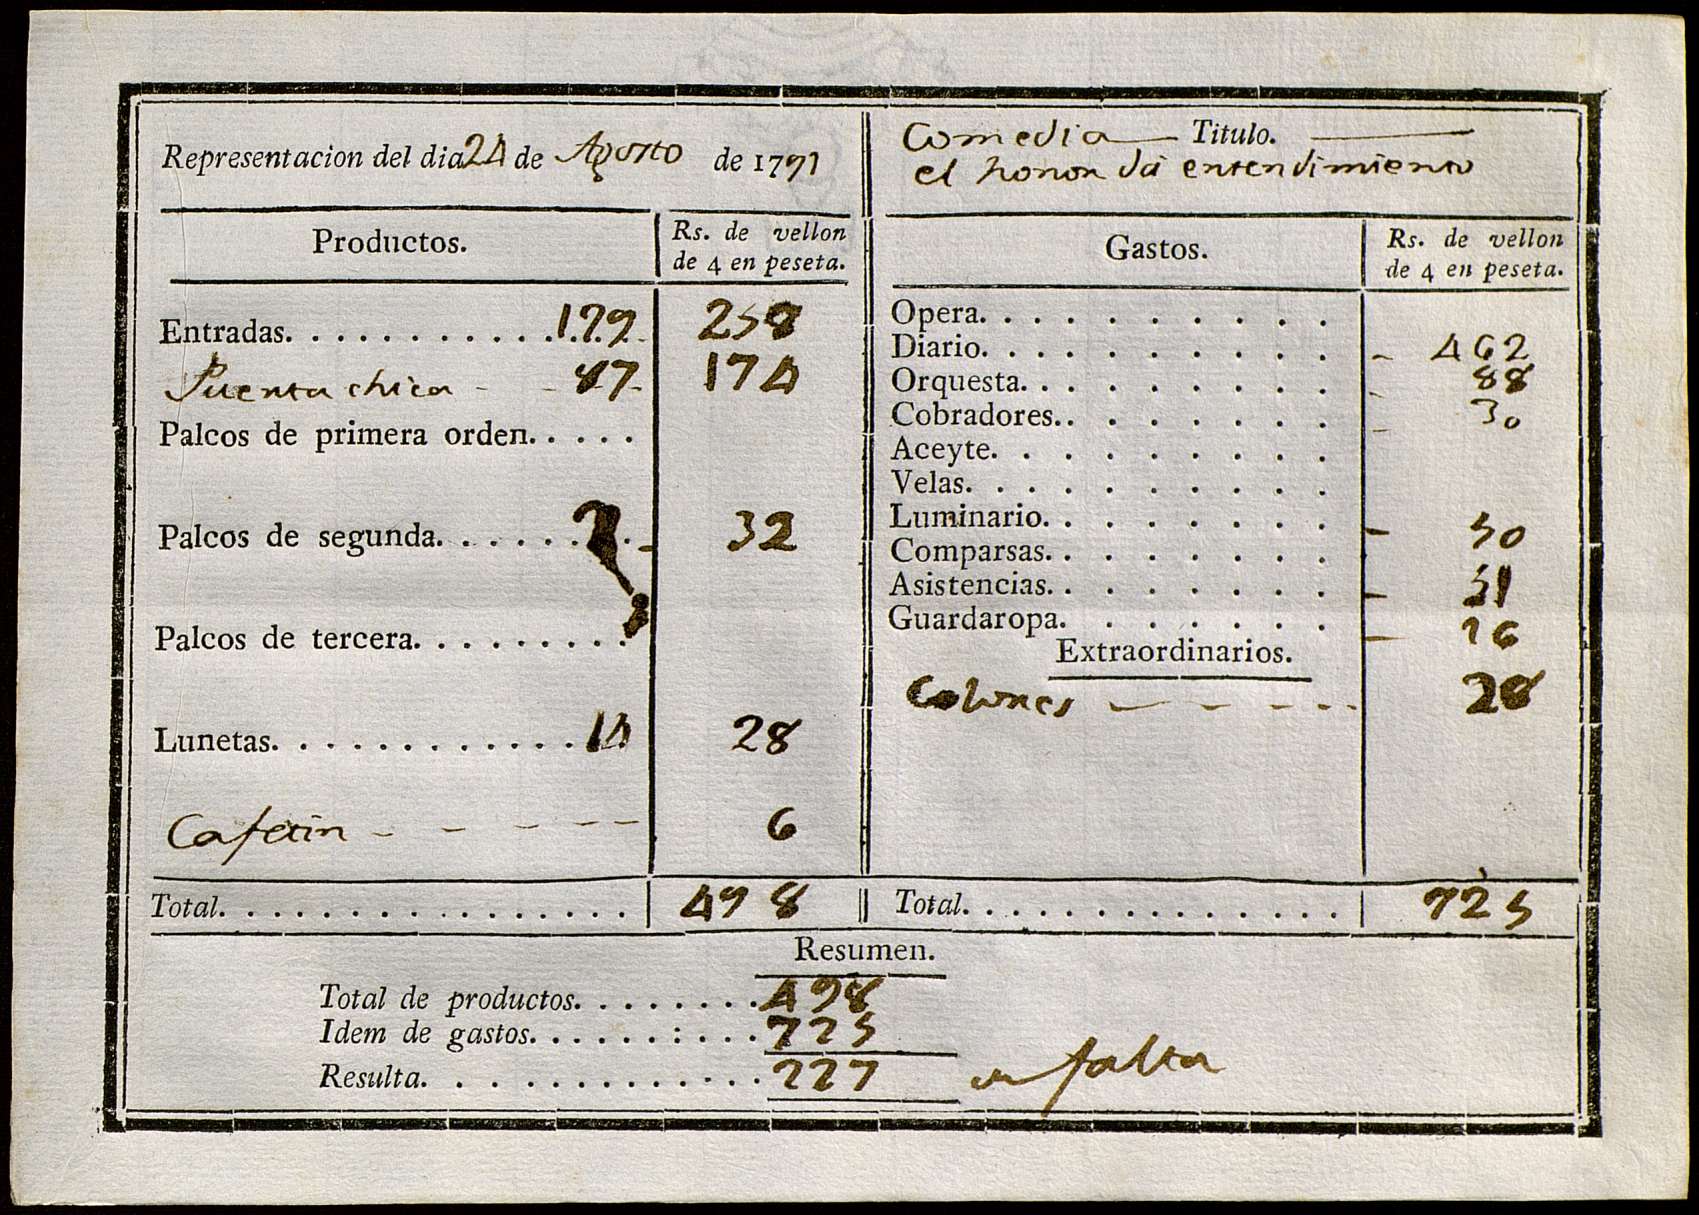 Representacion del dia 24 de Agosto de 1791
Comedia Titulo.
el honor dá entendimiento
Productos.
Rs. de vellon
de 4 en peseta.
Entradas. 129 258
Puerta chica 87 174
Palcos de primera orden.
Palcos de segunda. 32
Palcos de tercera.
Lunetas. 14 28
Cafetin 6
Total. 498
Gastos.
Rs. de vellon
de 4 en peseta.
Opera.
Diario. 462
Orquesta. 88
Cobradores. 30
Aceyte.
Velas.
Luminario. 50
Comparsas.
Asistencias. 51
Guardaropa. 16
Extraordinarios.
28
Total. 725
Resumen.
Total de productos. 498
Idem de gastos. 725
Resulta. 227 en falta